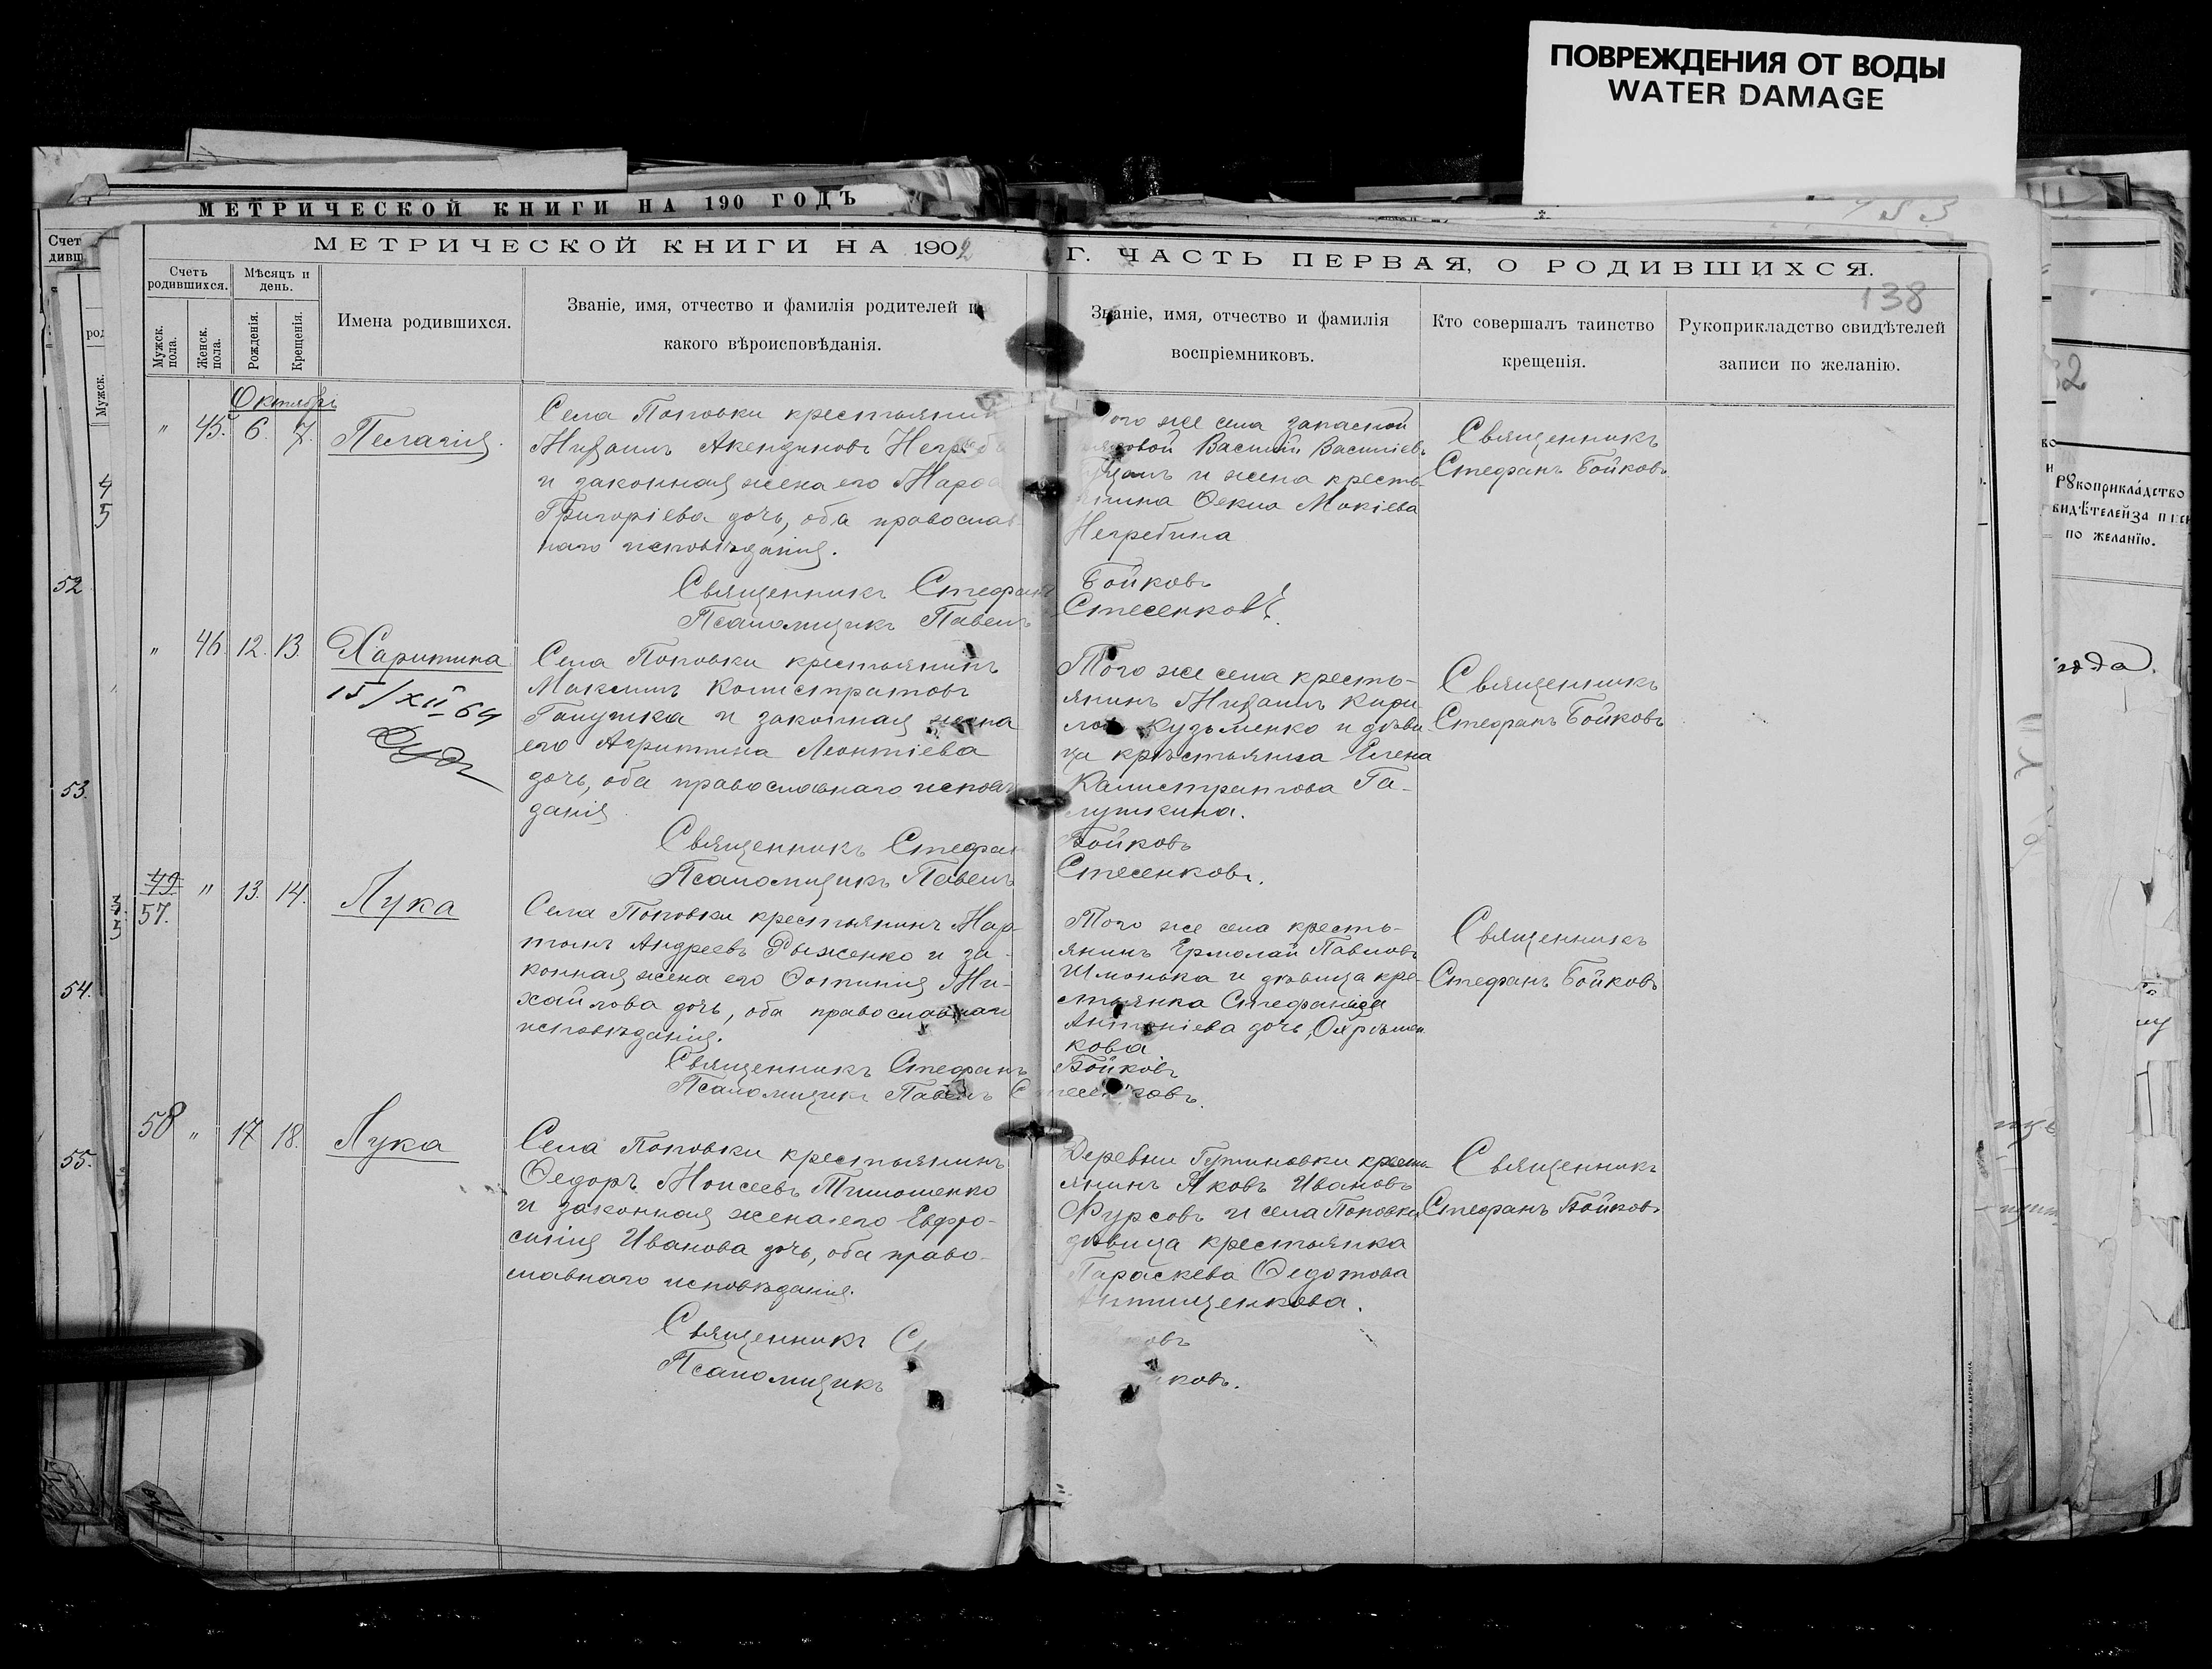 ПОВРЕЖДЕНИЯ ОТ ВОДЫ
WATER DAMAGE
МЕТРИЧЕСКОЙ КНИГИ НА 190 ГОДЪ
МЕТРИЧЕСКОЙ КНИГИ НА 1902 Г. ЧАСТЬ ПЕРВАЯ, О РОДИВШИХСЯ.
138
Счетъ родившихся.
Мужск. пола.
Женск. пола.
Мѣсяцъ и день.
Рожденія.
Крещенія.
Имена родившихся.
Званіе, имя, отчество и фамилія родителей и
какого вѣроисповѣданія.
Званіе, имя, отчество и фамилія
воспріемниковъ.
Кто совершалъ таинство
крещенія.
Рукоприкладство свидѣтелей
записи по желанію.
Октябрь
" 45. 6. 7.
Пелагія.
Села Поповки крестьянин
Михаилъ
и законная жена его
Григоріева дочь, оба православ
наго исповѣданія.
Священникъ Стефанъ Бойковъ
Псаломщикъ Павелъ Стесенковъ.
того же села запасной
рядовой Василій Васильевъ
и жена кресть
янина Фекла Мокіева
Негребина
Священникъ
Стефанъ Бойковъ
" 46. 12. 13.
Харитина
15/XII 64
Села Поповки крестьянинъ
Максимъ Калистратовъ
Галушка и законная жена
его Агрипина Леонтіева
дочь, оба православнаго исповѣ
данія
Священникъ Стефанъ Бойковъ
Псаломщикъ Павелъ Стесенковъ.
Того же села кресть-
янинъ Михаилъ Кири
ловъ Кузьменко и дѣви
ца крестьянка Елена
Калистратова Га-
лушкина.
Священникъ
Стефанъ Бойковъ
49
57. " 13. 14.
Лука
Села Поповки крестьянинъ Мар-
тынъ Андреевъ Рыженко и за-
конная жена его Фотинія Ми-
хайлова дочь, оба православнаго
исповѣданія.
Священникъ Стефанъ Бойковъ
Псаломщикъ Павелъ Стесенковъ.
Того же села кресть-
янинъ Ермолай Павловъ
Шмонька и дѣвица кре-
стьянка Стефанида
Антоніева дочь,
кова
Священникъ
Стефанъ Бойковъ
58 " 17 18.
Лука
Села Поповки крестьянинъ
Ѳедоръ Моисеевъ Тимошенко
и законная жена его Евфро-
синія Иванова дочь, оба право-
славнаго исповѣданія.
Священникъ
Псаломщикъ
Деревни Гутиновки кресть-
янинъ Яковъ Ивановъ
Фурсовъ и села Поповки
дѣвица крестьянка
Параскева Ѳедотова
Священникъ
Стефанъ Бойковъ
52
53.
54.
55.
Рукоприкла́дство
по жела́нїю.
года.